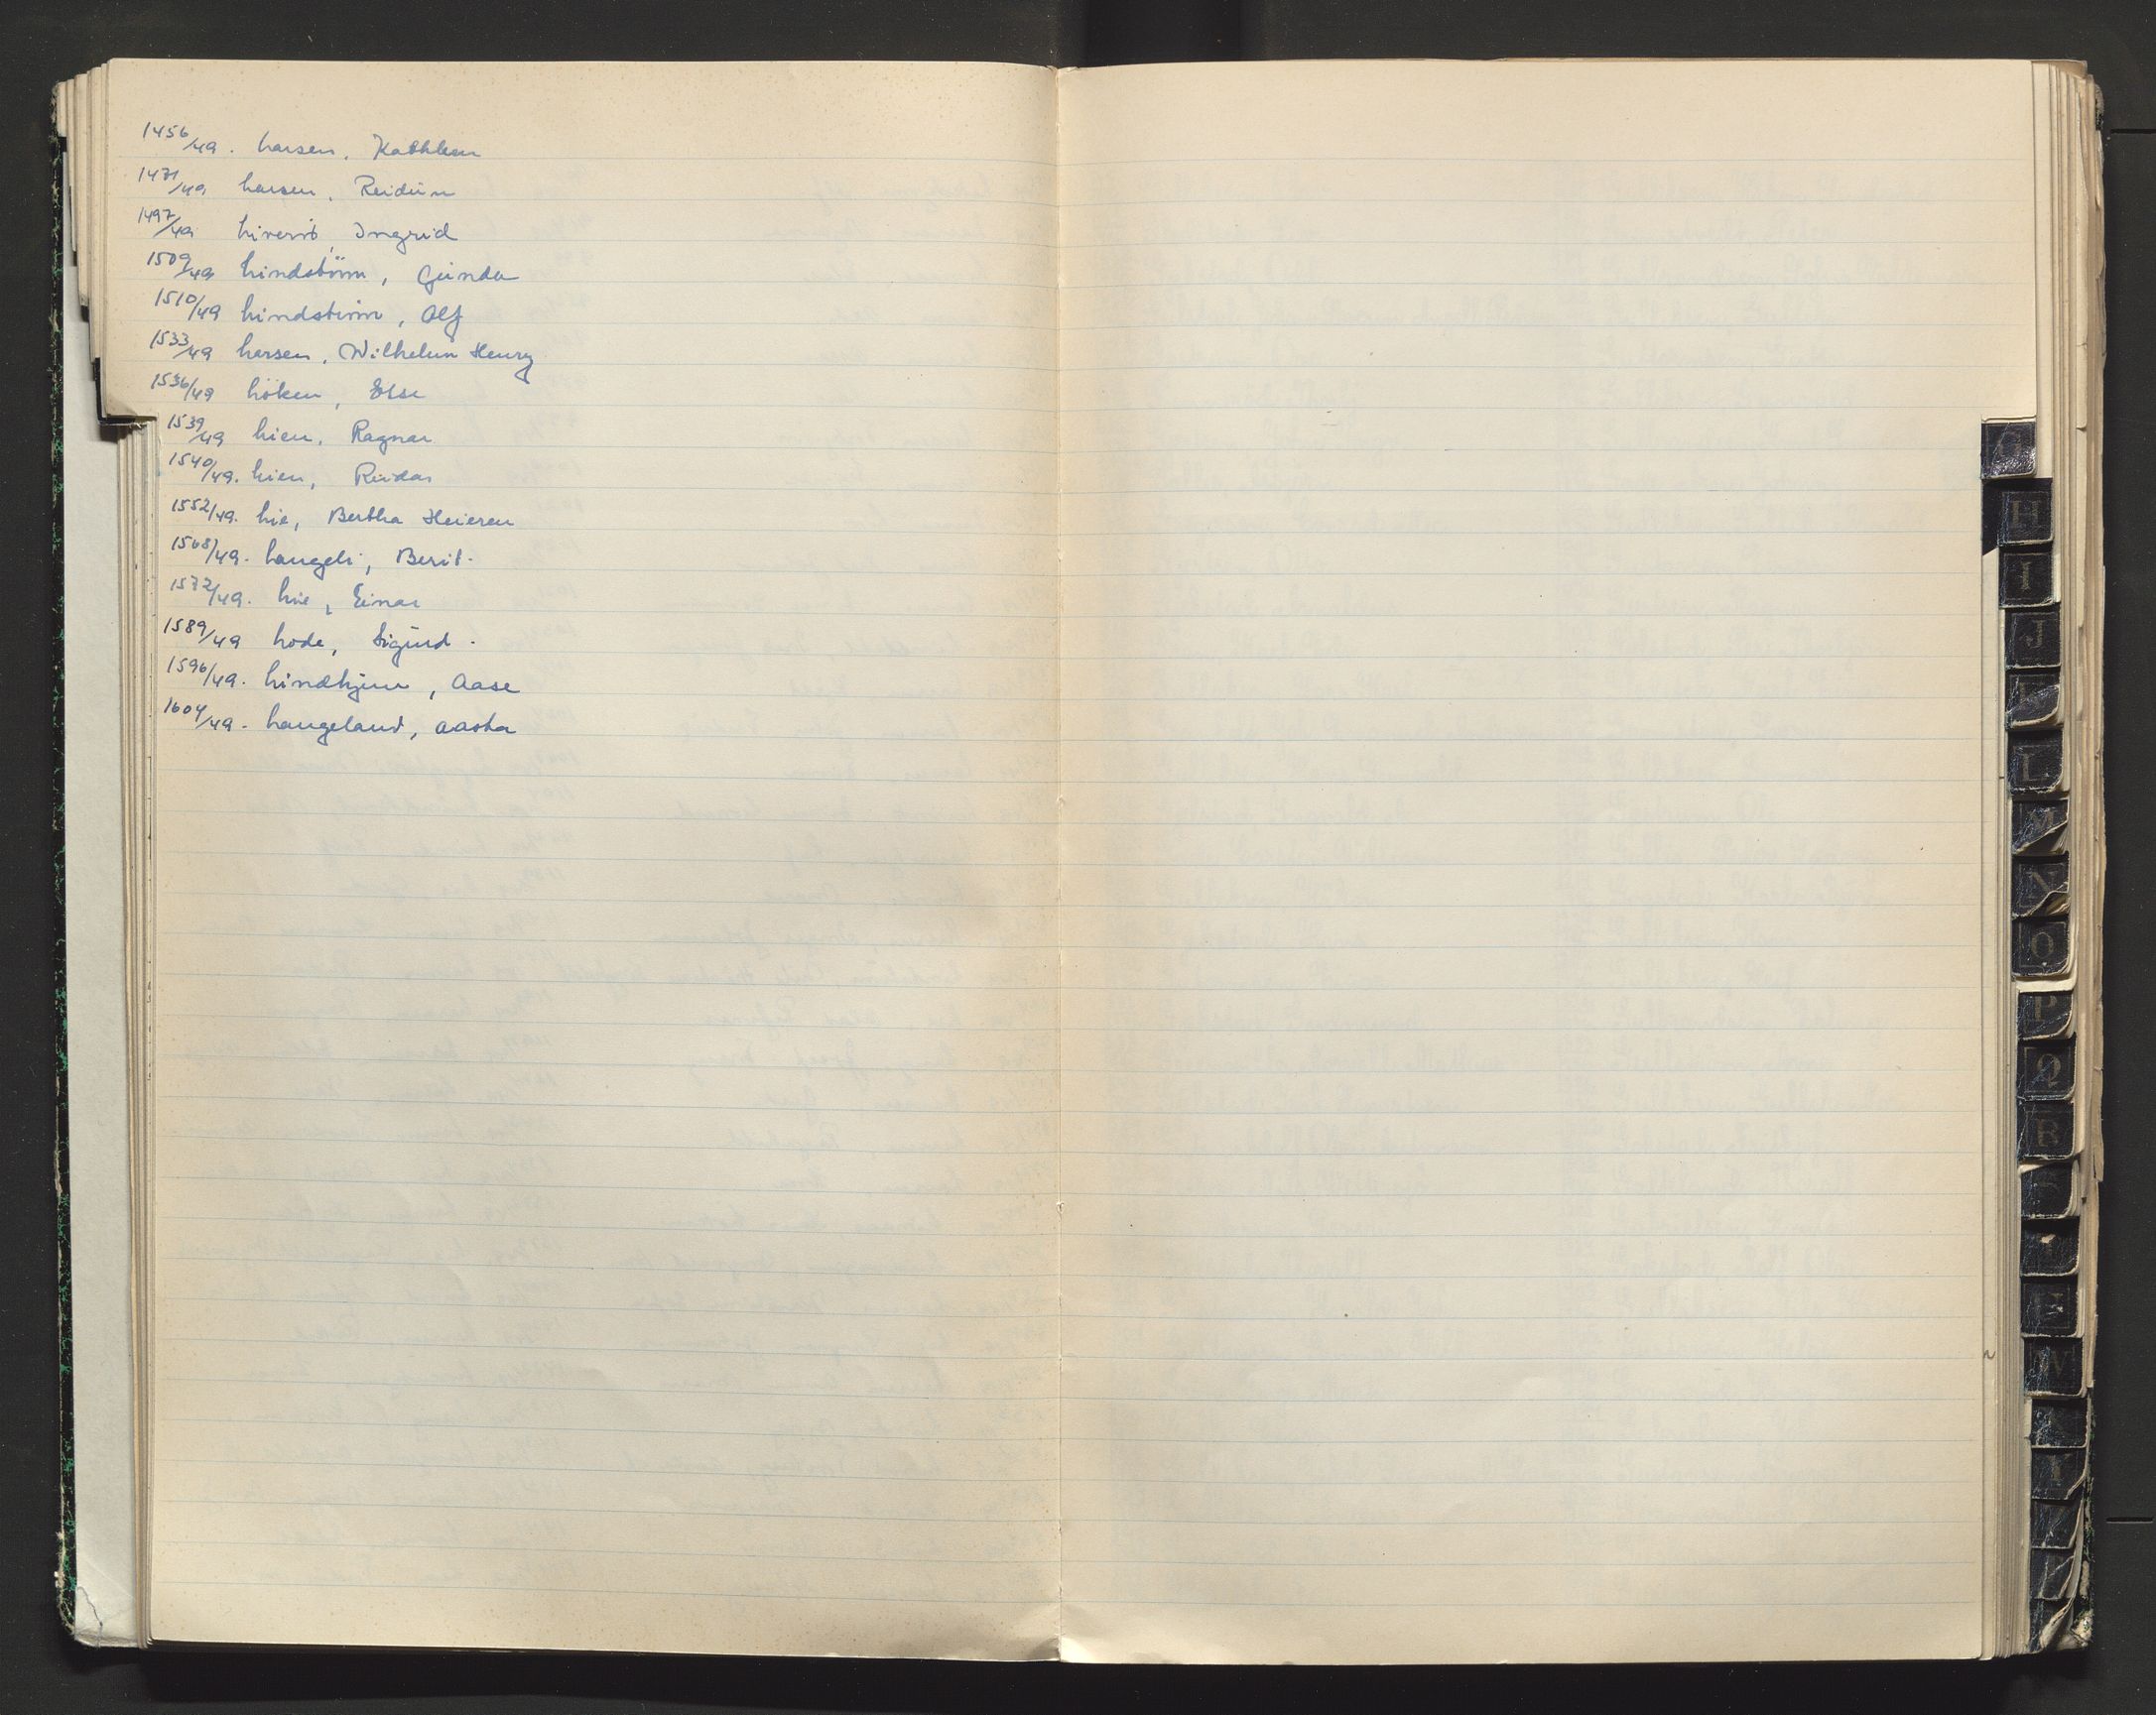 1456/49. Larsen, Kathleen
1471/49 Larsen, Reidun
1497/49 Ingrid
1509/49 Lindstöm, Gunda
1510/49 Lindström, Alf
1533/49 Larsen, Wilhelm Henry
1536/49 Löken, Else
1539/49 Lien, Ragnar
1540/49. Lien, Reidar
1552/49. Lie, Bertha Heieren
1568/49. Langeli, Berit.
1572/49. Lie, Einar
1589/49 Lode, Sigurd.
1596/49. Lindhjem, Aase
1604/49. Langeland, Aasta
H
I
J
L
M
N
O
P
Q
R
W